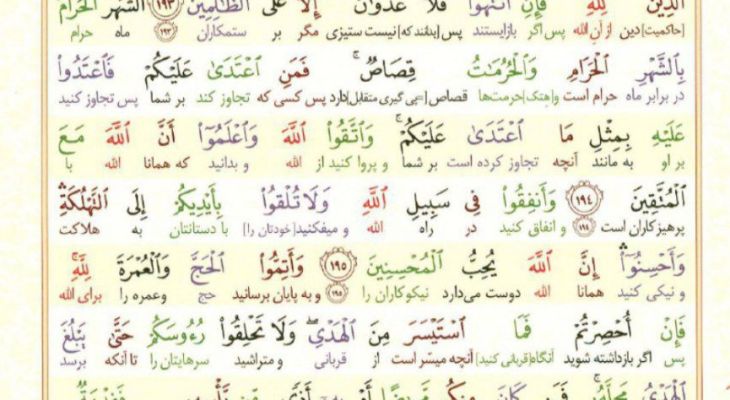 الدِّينُ لِلَّهِ فَإِنِ انْتَهَوْا فَلَا عُدْوَانَ إِلَّا عَلَى الظَّالِمِينَ ﴿١٩٣﴾ الشَّهْرُ الْحَرَامُ
[حاکمیت] دین از آنِ الله پس اگر بازایستند پس [بدانند که] نیست ستیزی مگر بر ستمکاران ﴿۱۹۳﴾ ماه حرام
بِالشَّهْرِ الْحَرَامِ وَالْحُرُمَاتُ قِصَاصٌ ۚ فَمَنِ اعْتَدَىٰ عَلَيْكُمْ فَاعْتَدُوا
در برابر ماه حرام است و [هتک] حرمت‌ها قصاص [=پی گیری متقابل] دارد پس کسی که تجاوز کند بر شما پس تجاوز کنید
عَلَيْهِ بِمِثْلِ مَا اعْتَدَىٰ عَلَيْكُمْ ۚ وَاتَّقُوا اللَّهَ وَاعْلَمُوا أَنَّ اللَّهَ مَعَ
بر او به مانند آنچه تجاوز کرده است بر شما و پروا کنید از الله و بدانید که همانا الله با
الْمُتَّقِينَ ﴿١٩٤﴾ وَأَنْفِقُوا فِي سَبِيلِ اللَّهِ وَلَا تُلْقُوا بِأَيْدِيكُمْ إِلَى التَّهْلُكَةِ ۛ
پرهیزکاران است ﴿۱۹۴﴾ و انفاق کنید در راه الله و میفکنید [خودتان را] با دستانتان به هلاکت
وَأَحْسِنُوا ۛ إِنَّ اللَّهَ يُحِبُّ الْمُحْسِنِينَ ﴿١٩٥﴾ وَأَتِمُّوا الْحَجَّ وَالْعُمْرَةَ لِلَّهِ ۚ
و نیکی کنید همانا الله دوست می‌دارد نیکوکاران را ﴿۱۹۵﴾ و به پایان برسانید حج وعمره را برای الله
فَإِنْ أُحْصِرْتُمْ فَمَا اسْتَيْسَرَ مِنَ الْهَدْيِ ۖ وَلَا تَحْلِقُوا رُءُوسَكُمْ حَتَّىٰ يَبْلُغَ
پس اگر بازداشته شوید آنگاه [قربانی کنید] آنچه میسّر است از قربانی و متراشید سرهایتان را تا آنکه برسد
الْهَدْيُ مَحِلَّهُ ۚ فَمَنْ كَانَ مِنْكُمْ مَرِيضًا أَوْ بِهِ أَذًى مِنْ رَأْسِهِ فَفِدْيَةٌ